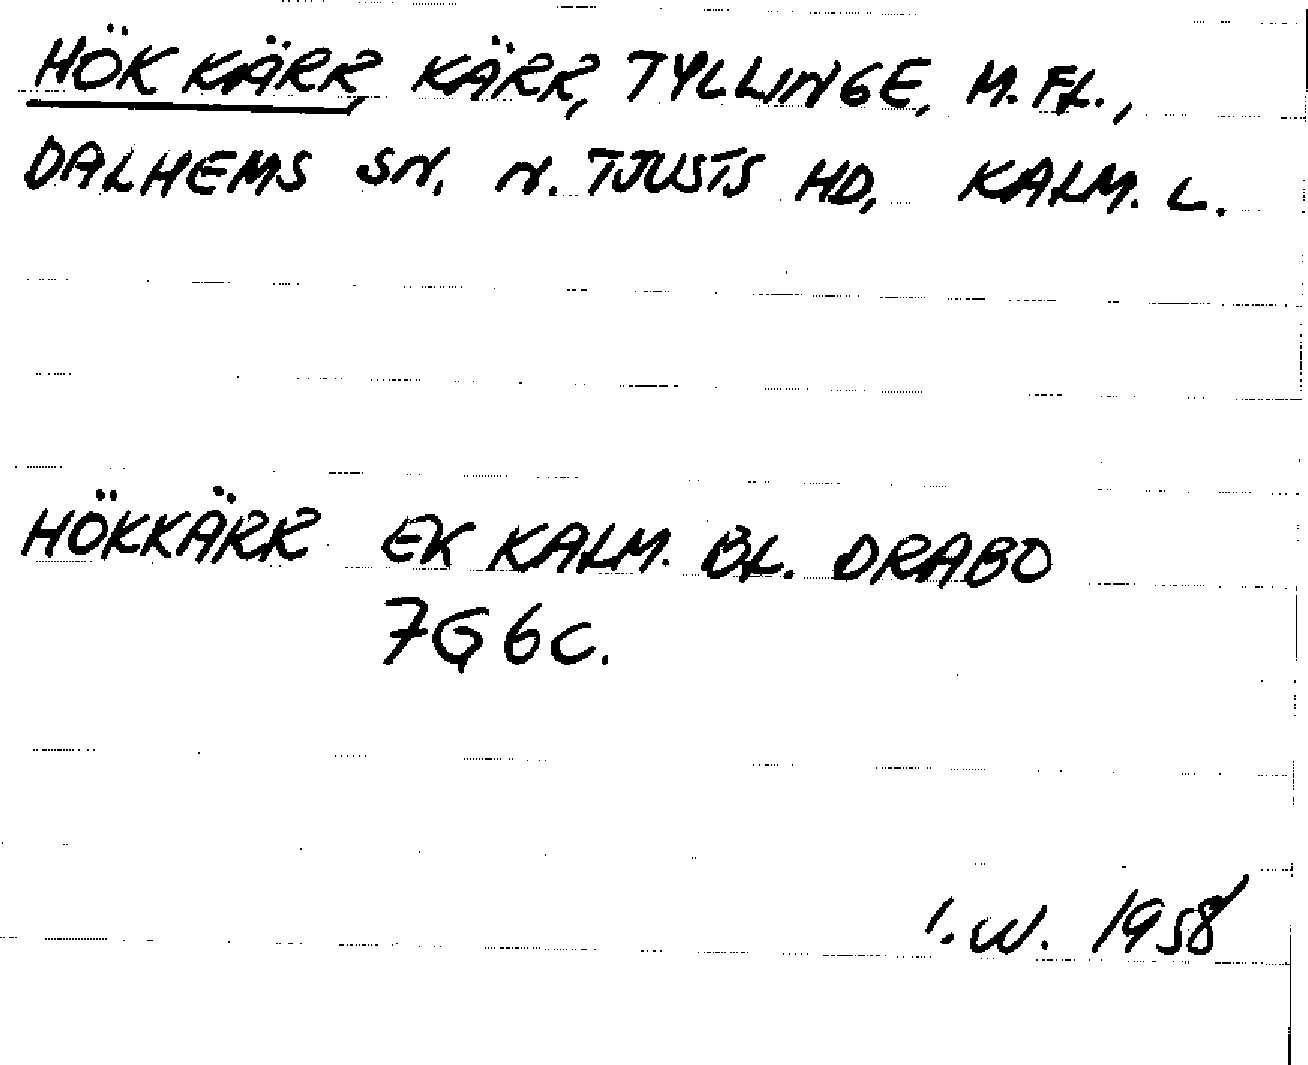 HÖKKÄRR, KÄRR, TYLLINGE, M.FL.,
DALHEMS SN. N. TJUSTS HD, KALM. L.
HÖKKÄRR EK KALM. BL. DRABO
7G 6c.
I.W. 1958